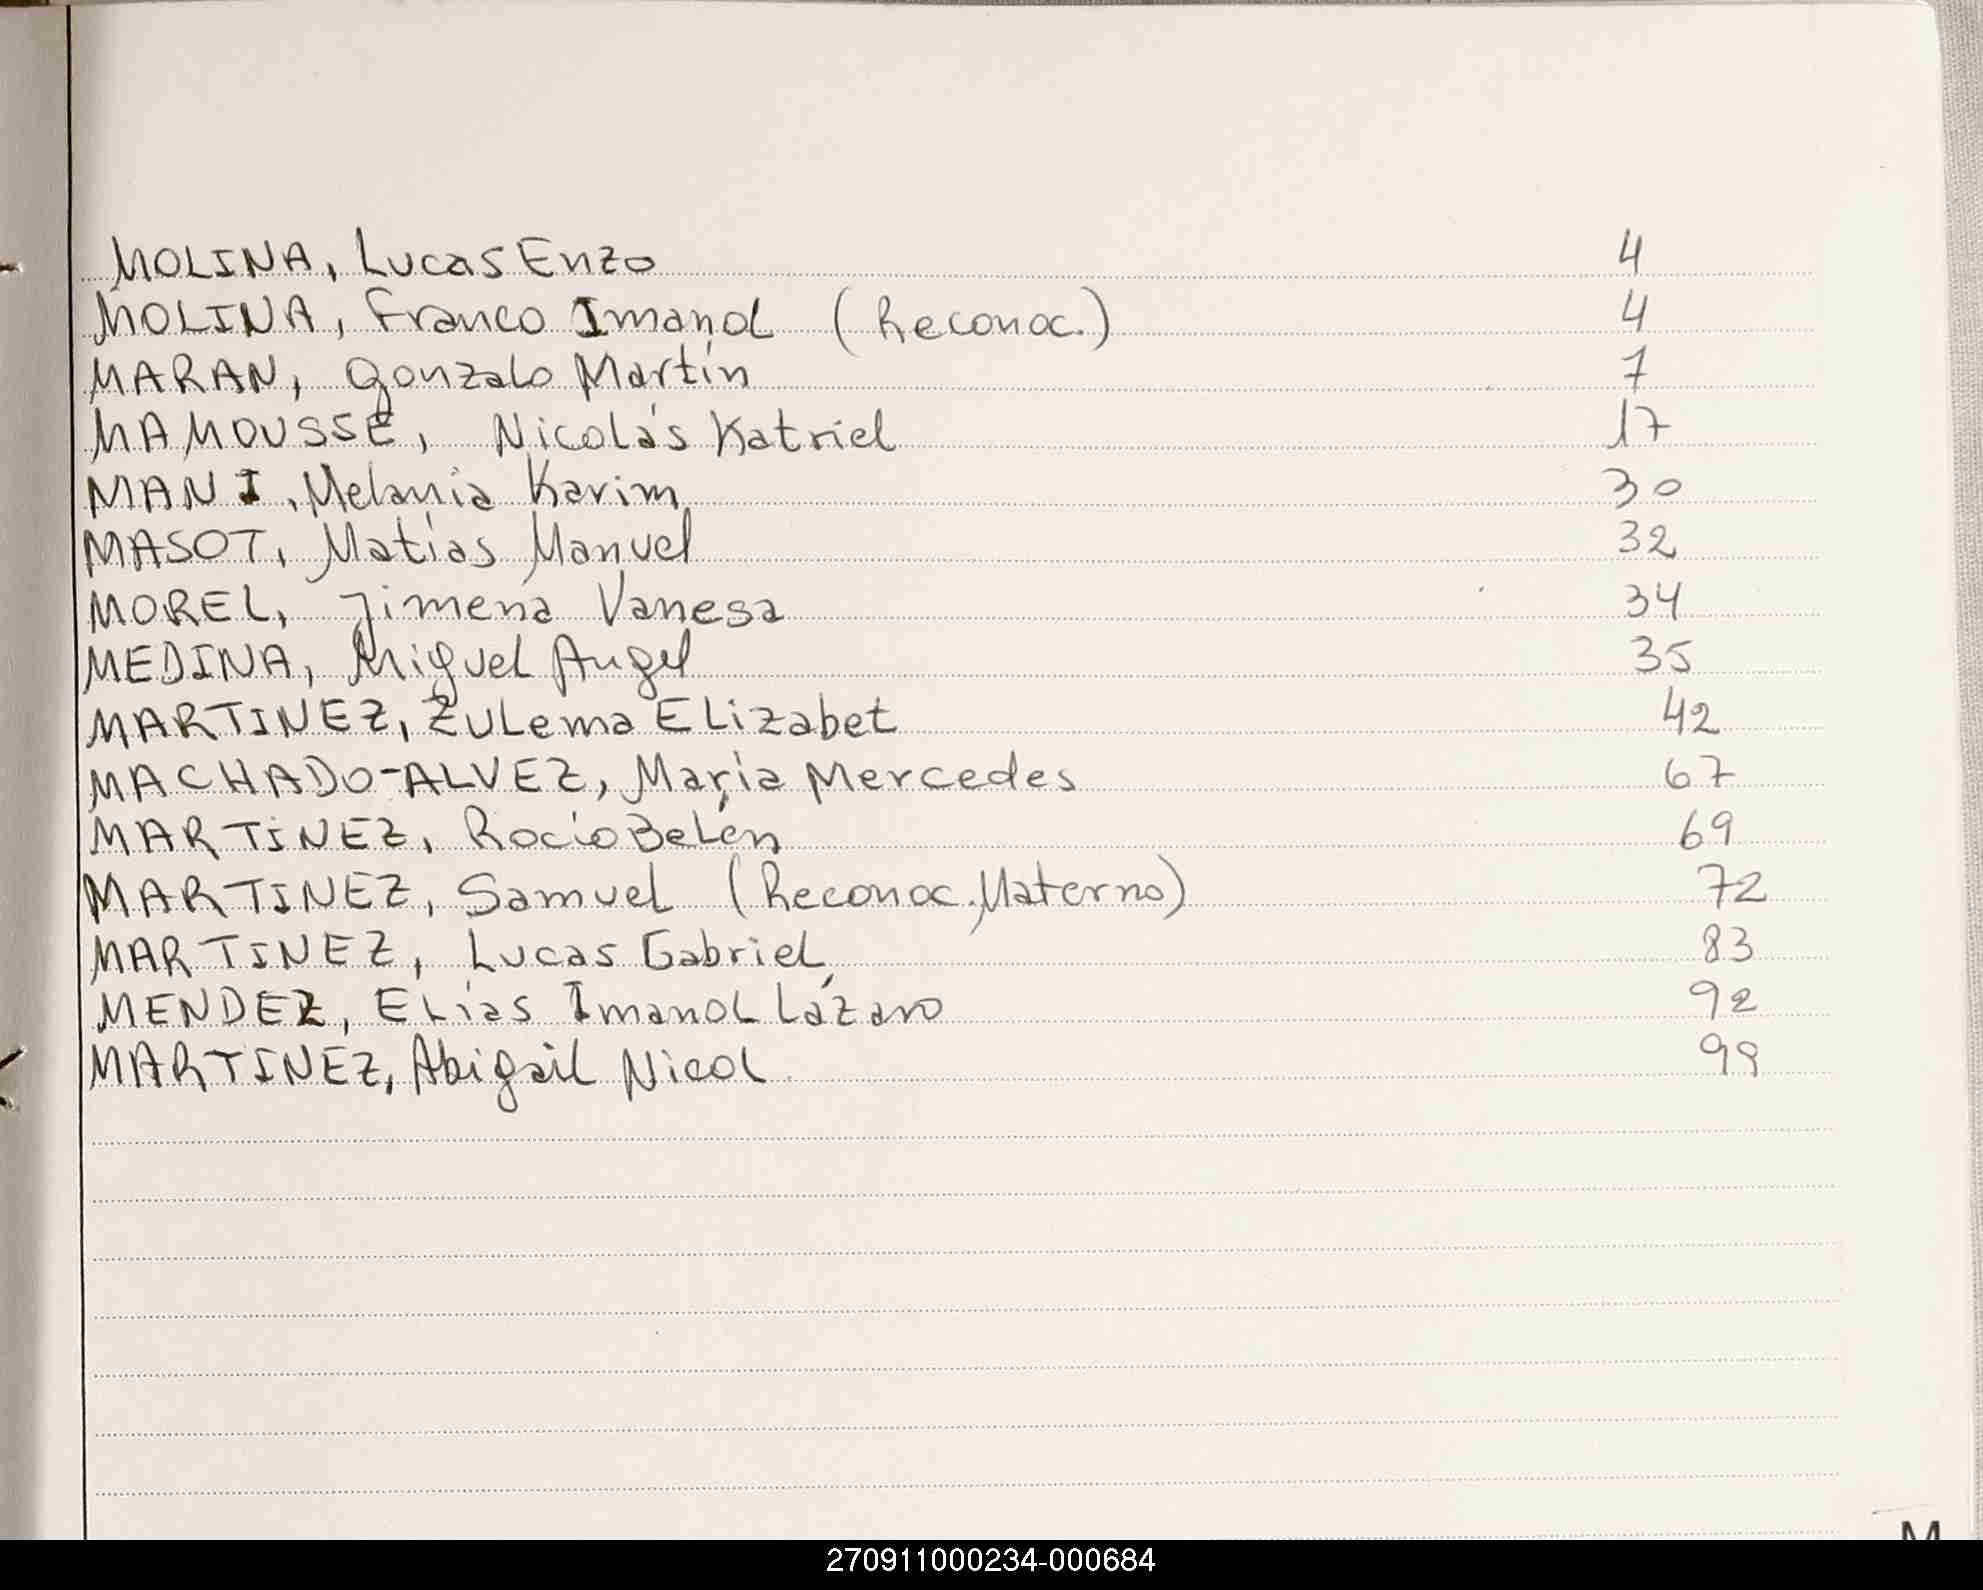 MOLINA, Lucas Enzo 4
MOLINA, Franco Imanol (Reconoc.) 4
MARAN, Gonzalo Martín 7
MAMOUSSE, Nicolás Katriel 17
MANI, Melania Karim 30
MASOT, Matías Manuel 32
MOREL, Jimena Vanesa 34
MEDINA, Miguel Angel 35
MARTINEZ, Zulema Elizabet 42
MACHADO-ALVEZ, María Mercedes 67
MARTINEZ, Rocío Belén 69
MARTINEZ, Samuel (Reconoc. Materno) 72
MARTINEZ, Lucas Gabriel 83
MENDEZ, Elías Imanol Lázaro 92
MARTINEZ, Abigail Nicol 99
M
270911000234-000684